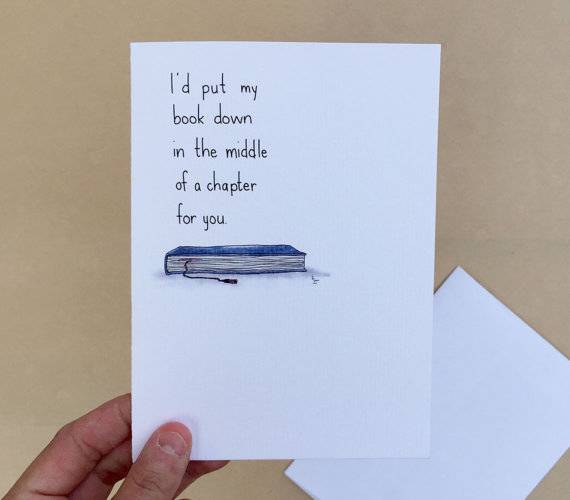 I'd put my
book down
in the middle
of a chapter
for you.